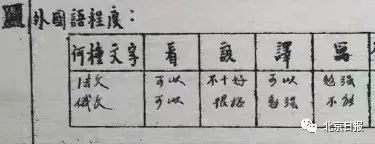 外國語程度：
何種文字 看 說 譯 寫
法文 可以 不十好 可以 勉強
俄文 可以 很極 勉強 不能
北京日报